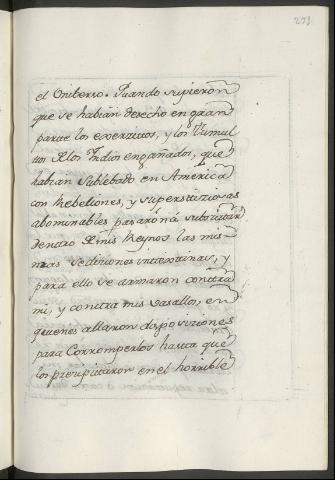 271
el Universo. Quando supieron
que se habian desecho en gran
parte los exerzitos, y los Tumul
tos de los Indios engañados, que
habian Sublebado en America
con Rebeliones, y superstiziosas
abominables pasaron á subzitar
dentro de mis Reynos las mis
mas Sediziones intestinas, y
para ello se armaron contra
mi, y contra mis Vasallos, en
quienes allaron disposiziones
para Corromperlos hasta que
los prezipitaron en el horrible